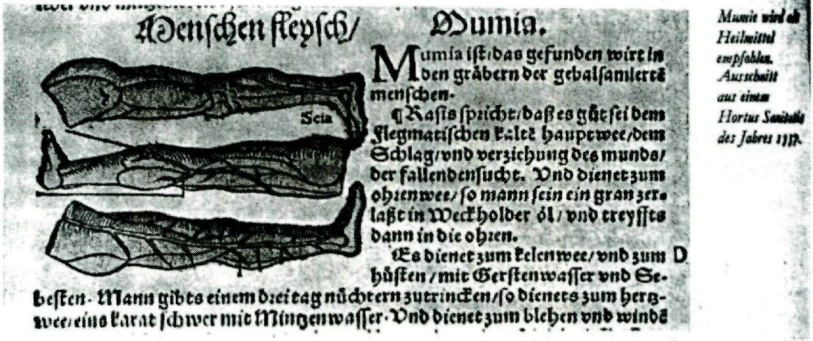 Menschen fleysch/ Mumia.
Mumia ist/das gefunden wirt in
den gräbern der gebalsamiertē
menschen.
¶Rasis spricht/daß es gůt sei dem
flegmatischen kaltē hauptwee/dem
Schlag/vnd verziehung des munds/
der fallendensucht. Vnd dienet zum
ohrenwee/so mann sein ein gran zer-
laßt in Weckholder öl/vnd treyffts
dann in die ohren.
Es dienet zum kelenwee/vnd zum D
hůsten/mit Gerstenwasser vnd Se-
besten. Mann gibts einem drei tag nüchtern zutrincken/so dienets zum hertz-
wee/eins karat schwer mit Mintzenwasser. Vnd dienet zum blehen vnd windē
Scia
Mumie wird als
Heilmittel
empfohlen.
Ausschnitt
aus einem
Hortus Sanitatis
des Jahres